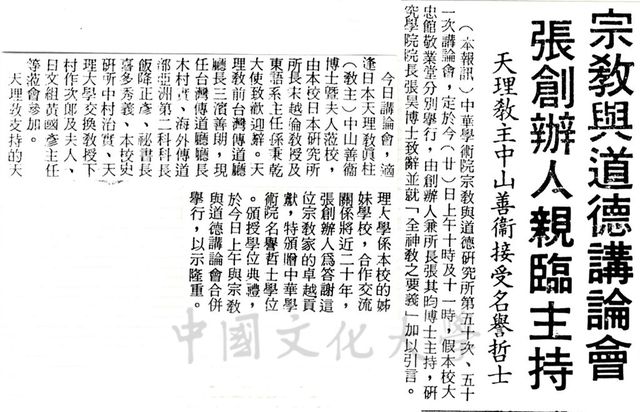 宗教與道德講論會
張創辦人親臨主持
天理教主中山善衞接受名譽哲士
（本報訊）中華學術院宗教與道德研究所第五十次、五十
一次講論會，定於今（廿）日上午十時及十一時，假本校大
忠館敬業堂分別舉行，由創辦人兼所長張其昀博士主持，研
究學院院長張昊博士致辭並就「全神教之要義」加以引言。
今日講論會，適
逢日本天理教眞柱
（教主）中山善衞
博士暨夫人蒞校，
由本校日本研究所
所長宋越倫教授及
東語系主任孫秉乾
大使致歡迎辭。天
理教前台灣傳道廳
廳長三濱善朗，現
任台灣傳道廳廳長
木村、海外傳道
部亞洲第二科科長
飯降正彥、祕書長
喜多秀義、本校史
研所中村治、天
理大學交換教授下
村作次郎及夫人、
日文組黃國彥主任
等蒞會參加。
天理教支持的天
理大學係本校的姊
妹學校，合作交流
關係將近二十年，
張創辦人爲答謝這
位宗教家的卓越貢
獻，特頒贈中華學
術院名譽哲士學位
。頒授學位典禮，
於今日上午與宗教
與道德講論會合併
舉行，以示隆重。
中國文化大學